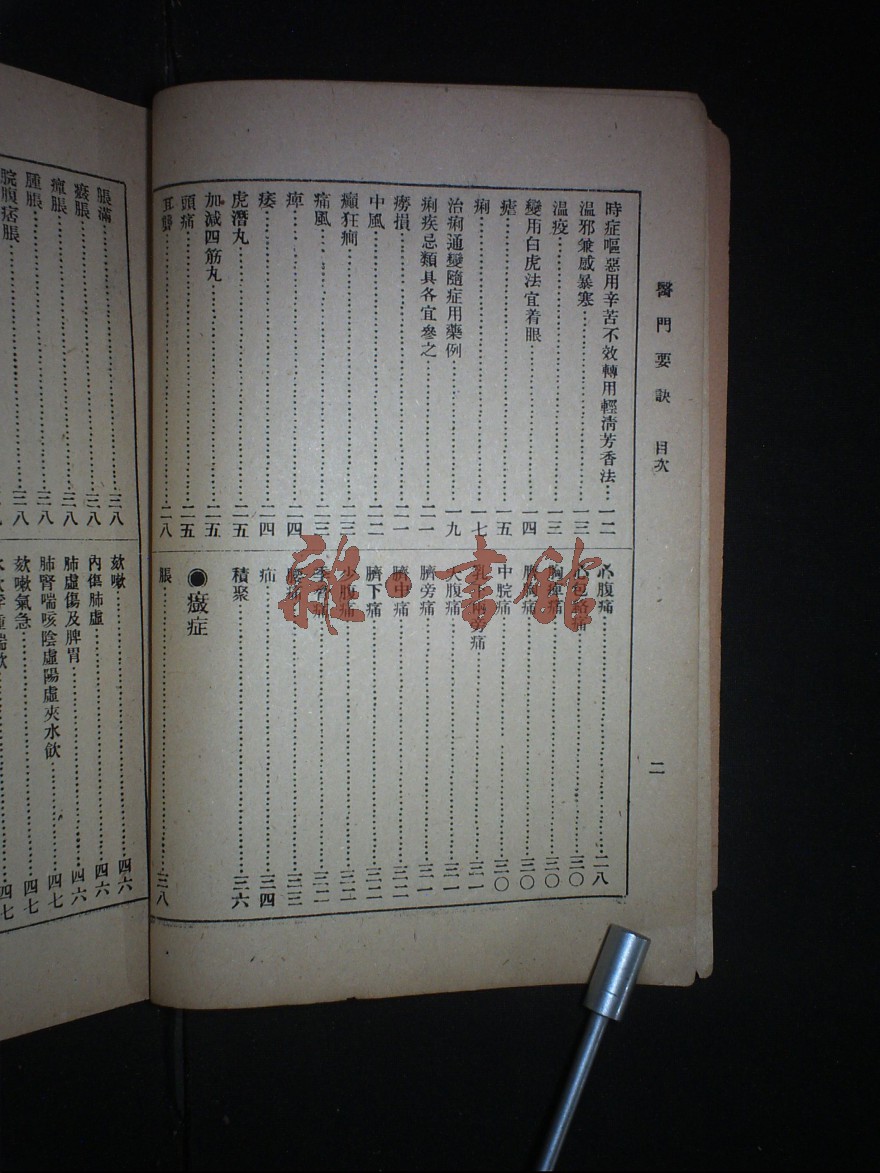 醫門要訣 目次
二
時症嘔惡用辛苦不效轉用輕清芳香法…一二
温邪兼感暴寒…一三
温疫…一三
變用白虎法宜着眼…一四
瘧…一五
痢…一七
治痢通變隨症用藥例…一九
痢疾忌類具各宜參之…二一
癆損…二一
中風…二二
癲狂痫…二三
痛風…二三
痺…二四
痿…二四
虎潛丸…二五
加減四筋丸…二五
頭痛…二五
耳聾…二八
心腹痛…二八
心包絡痛…三〇
胸痺痛…三〇
膺胸痛…三〇
中脘痛…三〇
乳下兩旁痛…三一
大腹痛…三一
臍旁痛…三一
臍中痛…三二
臍下痛…三二
少腹痛…三二
季脅痛…三二
腰痛…三三
疝…三四
積聚…三六
◉癥症
脹…三八
脹滿…三八
痰脹…三八
瘧脹…三八
腫脹…三八
脘腹痞脹
欬嗽…四六
內傷肺虛…四六
肺虛傷及脾胃…四六
肺腎喘咳陰虛陽虛夾水飲…四七
欬嗽氣急…四七
四七
雜·書館